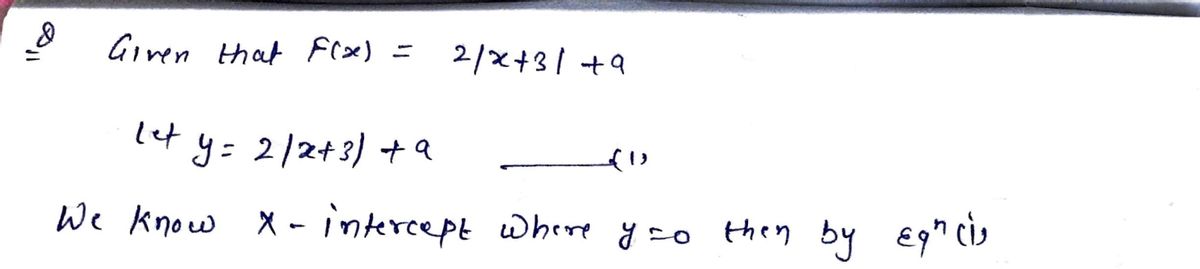 Q Given that F(x) = 2|x+3| +9
let y = 2|x+3| +9 (1)
We know x - intercept where y=0 then by Eqⁿ (1)